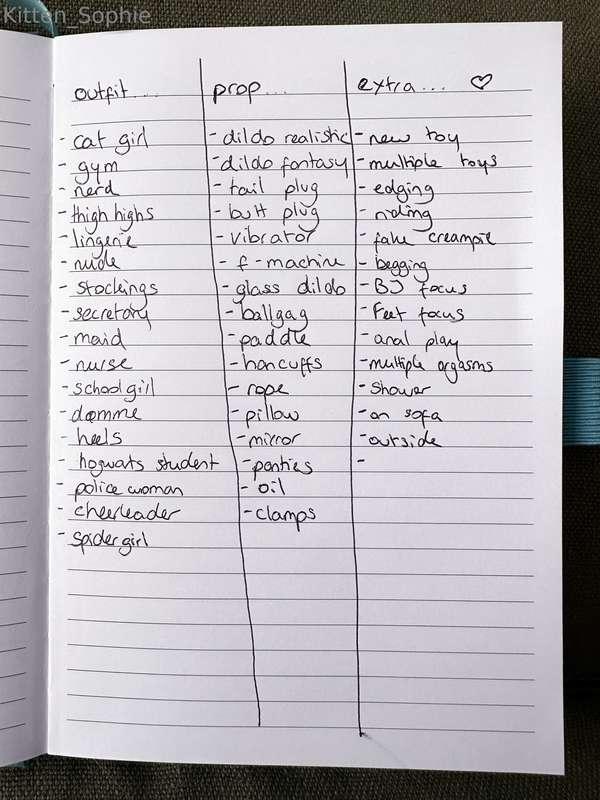 Kitten_Sophie
outfit... prop... extra... ♡
- cat girl - dildo realistic - new toy
- gym - dildo fantasy - multiple toys
- nerd - tail plug - edging
- thigh highs - butt plug - riding
- lingerie - vibrator - fake creampie
- nude - f-machine - begging
- stockings - glass dildo - BJ focus
- secretary - ballgag - Feet focus
- maid - paddle - anal play
- nurse - hancuffs - multiple orgasms
- school girl - rope - shower
- domme - pillow - on sofa
- heels - mirror - outside
- hogwarts student - panties -
- police woman - oil
- cheerleader - clamps
- spider girl